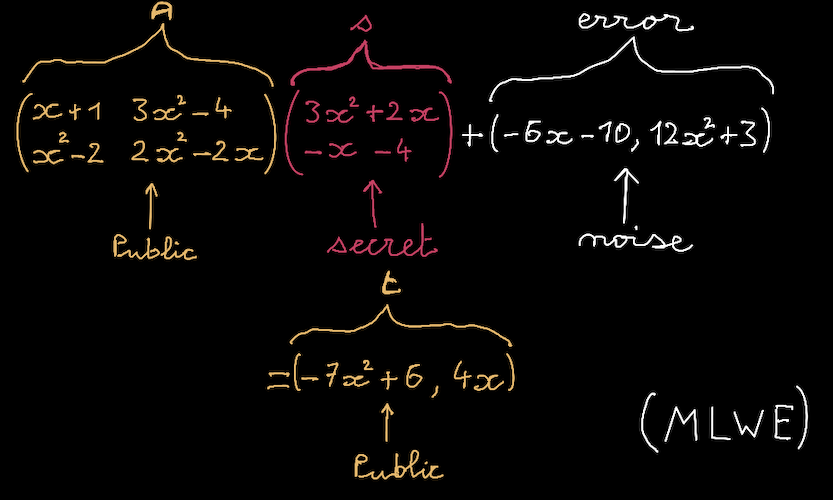 A s error
(x+1 3x²-4
x²-2 2x²-2x) (3x²+2x
-x -4) +(-6x-10, 12x²+3)
Public secret noise
t
=(-7x²+6, 4x)
Public
(MLWE)